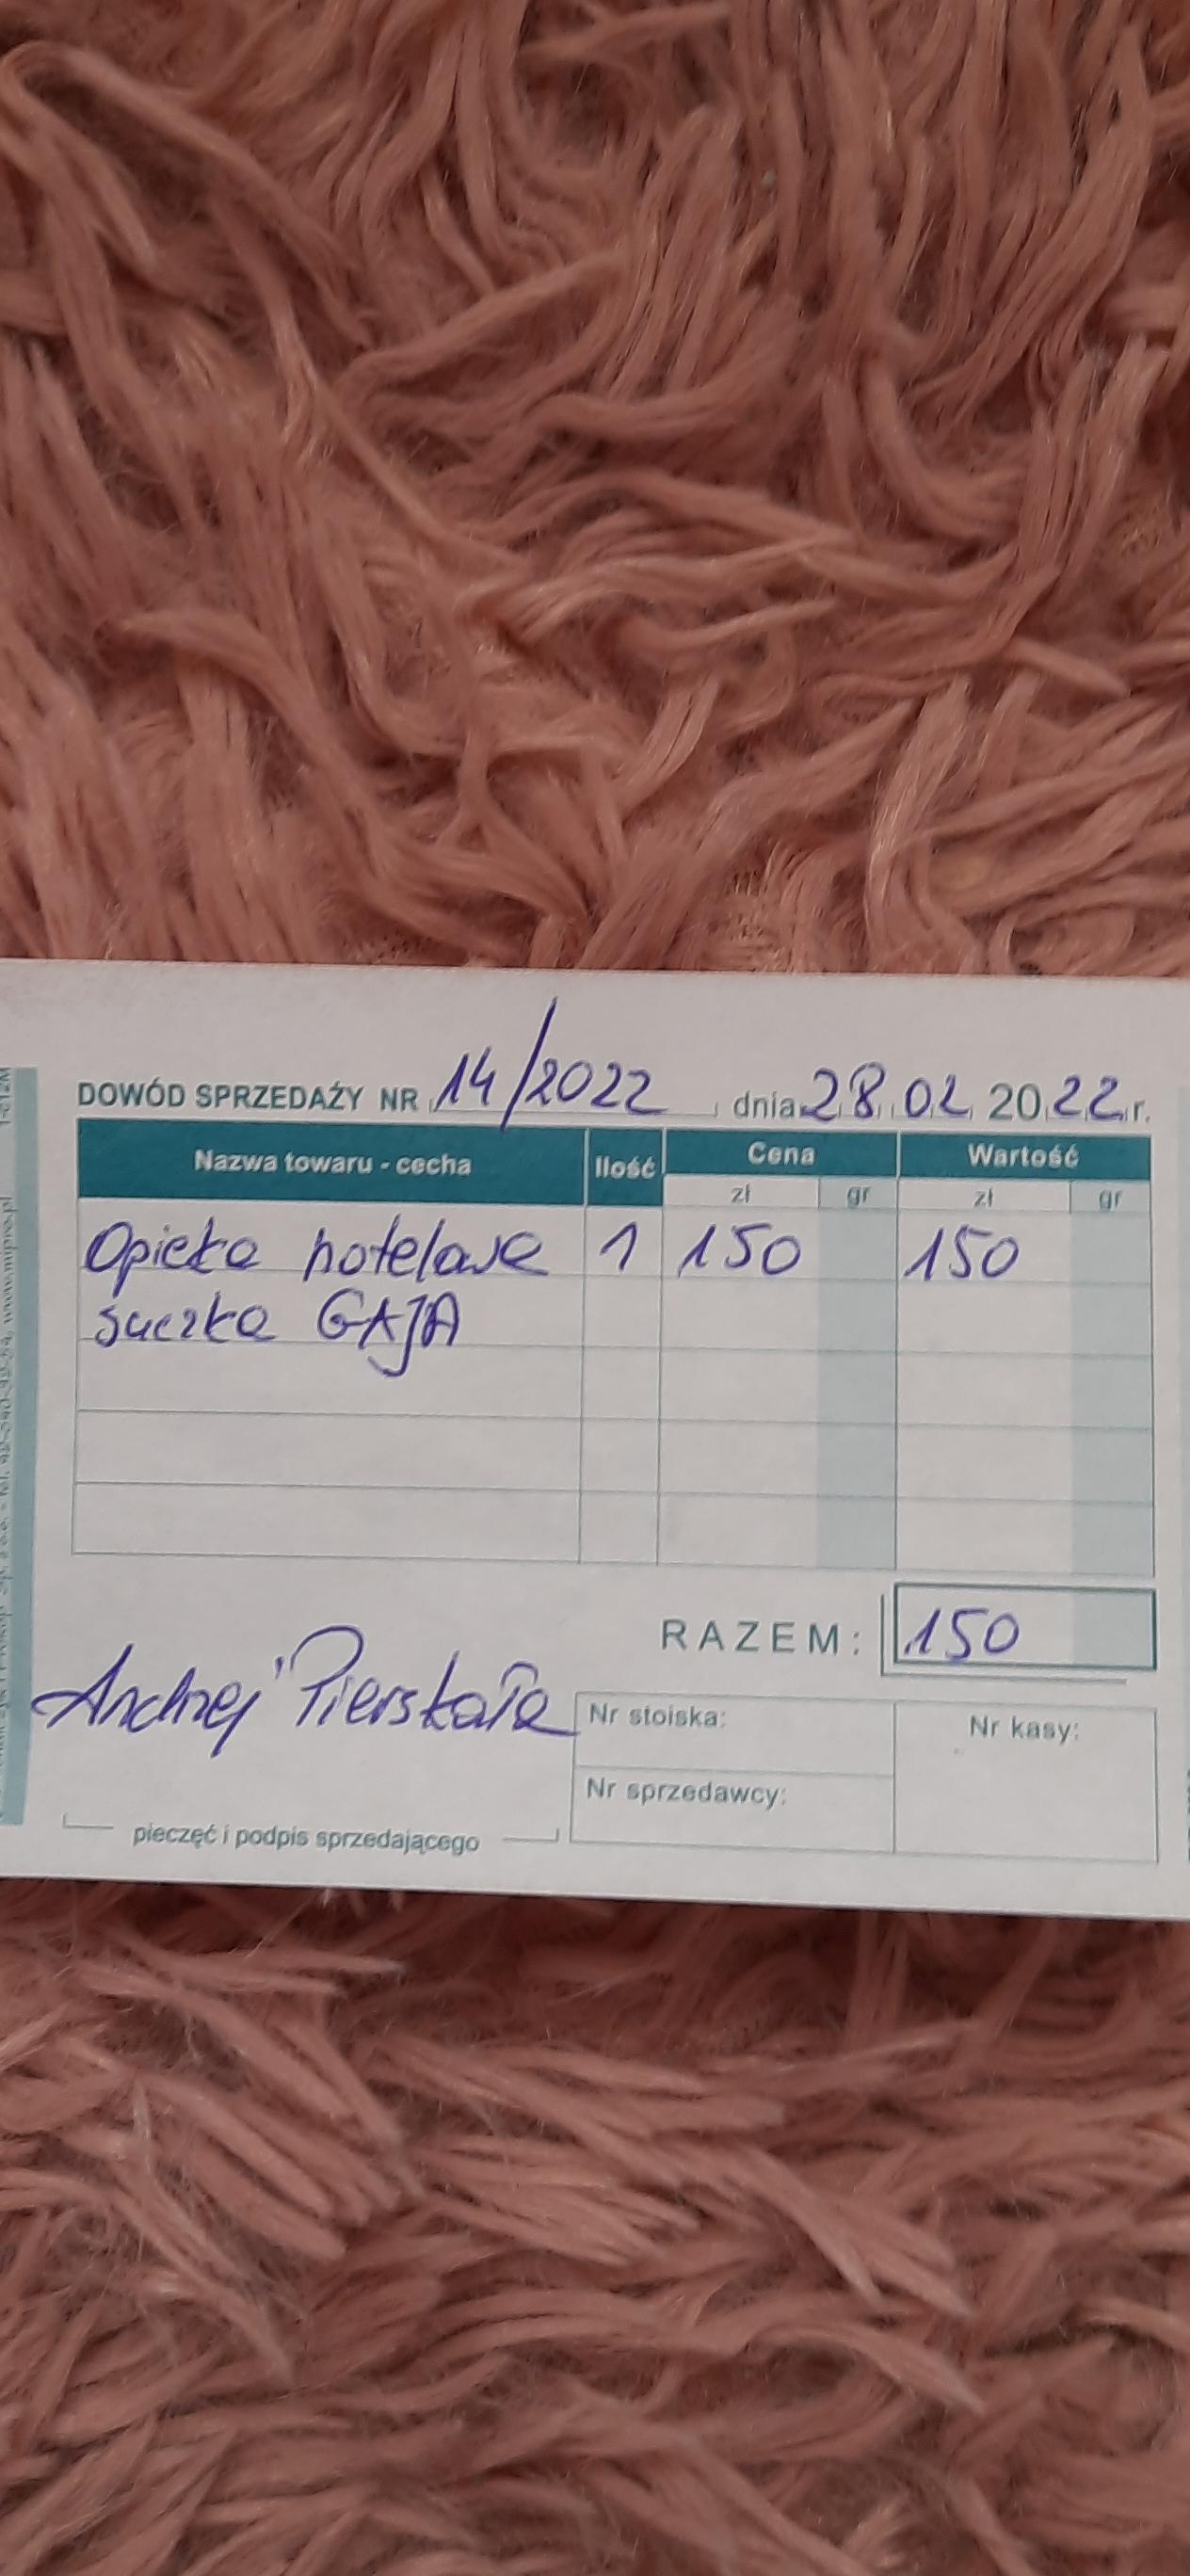 DOWÓD SPRZEDAŻY NR 14/2022, dnia 28.02.2022r.
Nazwa towaru - cecha Ilość Cena Wartość
zł gr zł gr
Opieka hotelowa 1 150 150
suczka GAJA
RAZEM: 150
Andrzej Pierskała
Nr stoiska: Nr kasy:
Nr sprzedawcy:
pieczęć i podpis sprzedającego